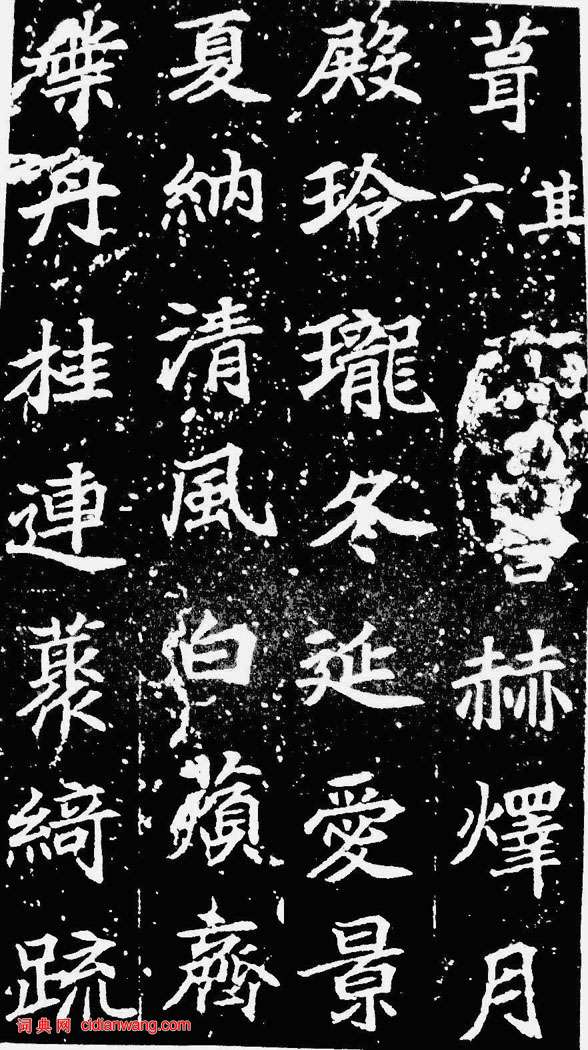 葺其六赫燁月
殿玲瓏冬延愛景
夏納清風白蘋齊
葉丹桂連藂綺䟽
词典网 cidianwang.com